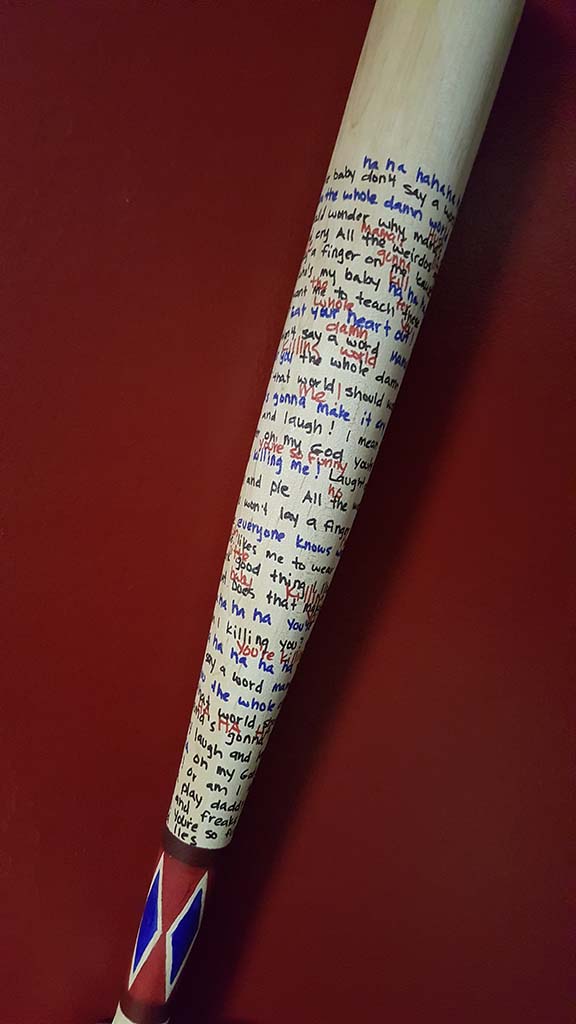 ha ha hahaha
baby don't say a
the whole damn
wonder why
mama's
cry All the weirdos
gonna
a finger on me
kill
my baby ha ha
the
me to teach those
whole
eat your heart out
damn
say a word
Killing world
you the whole damn
that world I should
Me
gonna make it
and laugh! I mean
oh my God you're
you're so funny
killing me! Laugh
ho
and pie All the
won't lay a finger
everyone knows
likes me to wear
little
good thing
baby Killi
Does that
ha ha ha you
I killing you?
You're killi
ha ha ha ha ha
say a word
the whole
world
HA HA
gonna
laugh and
oh my God
or am I
play daddy
and freaks
You're so f
lies